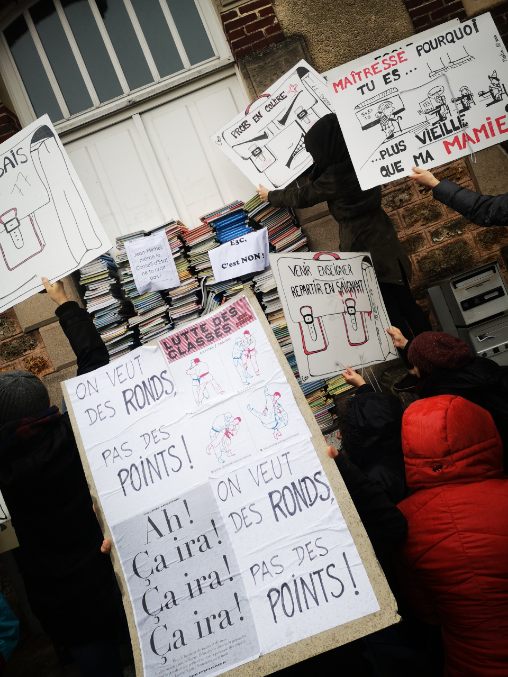 AIS
PROFS EN COLÈRE
MAÎTRESSE POURQUOI
TU ES...
...PLUS VIEILLE
QUE MA MAMIE
E3C,
C'est NON!
VENIR ENSEIGNER
REPARTIR EN SAIGNANT
LUTTE DES
CLASSES
ON VEUT
DES RONDS,
PAS DES
POINTS!
ON VEUT
DES RONDS,
PAS DES
POINTS!
Ah!
Ça ira!
Ça ira!
Ça ira!